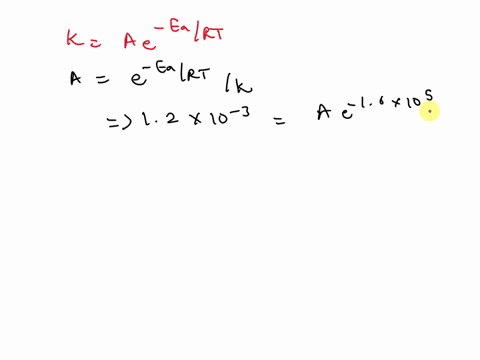 K = A e^-Ea/RT
A = e^-Ea/RT /K
=> 1.2 × 10^-3 = A e^-1.6 × 10^5